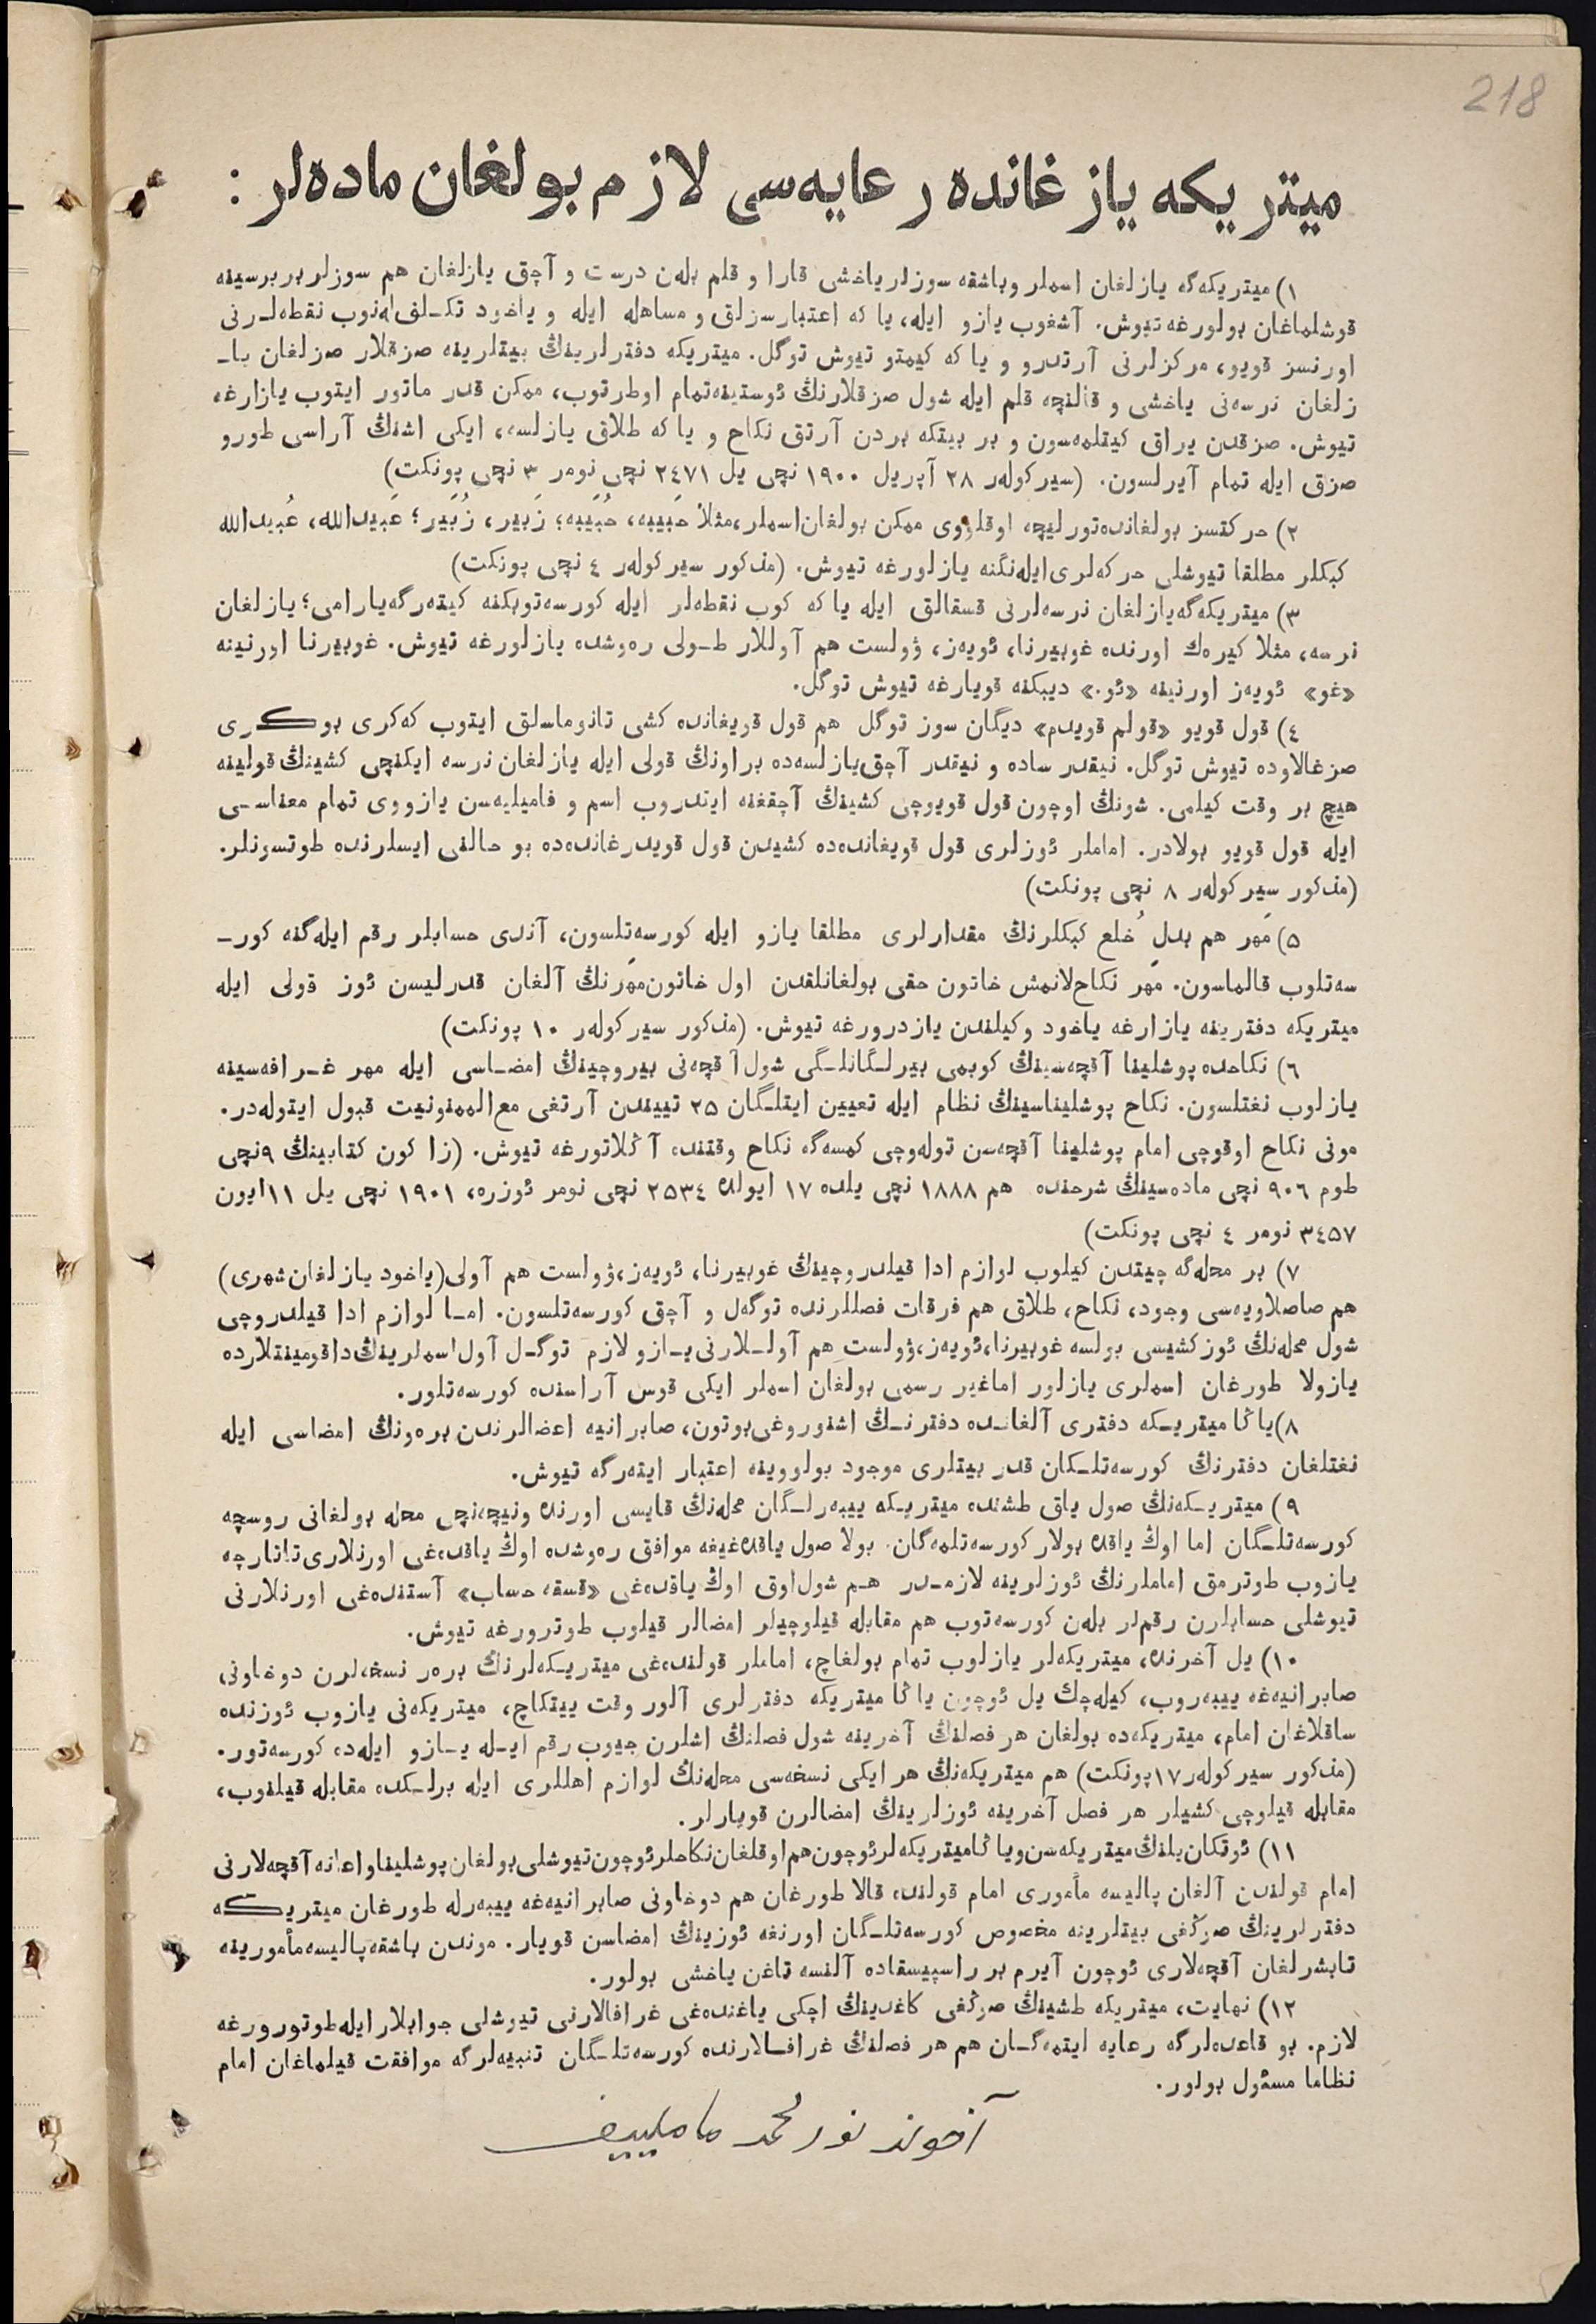 218
میتریکه یازغانده رعایه‌سی لازم بولغان ماده‌لر :
۱) میتریکه‌گه یازلغان اسملر وباشقه سوزلر یاخشی قارا و قلم بلەن درست و آچق یازلغان هم سوزلر بر برسینه
قوشلماغان بولورغه تیوش. آشغوب یازو ایله، یا که اعتبارسزلق و مساهله ایله و یاخود تکـلف لەنوب نقطه‌لـرنی
اورنسز قویو، مرکزلرنی آرتدرو و یا که کیمتو تیوش توگل. میتریکه دفترلرینڭ بیتلرینه صزقلار صزلغان یاـ
زلغان نرسه‌نی یاخشی و قالنچه قلم ایله شول صزقلارنڭ ئوستینه‌تمام اوطرتوب، ممکن قدر ماتور ایتوب یازارغه
تیوش. صزقدن یراق کیتلمه‌سون و بر بیتکه بردن آرتق نکاح و یا که طلاق یازلسه، ایکی اشنڭ آراسی طورو
صزق ایله تمام آیرلسون. (سیرکولەر ۲۸ آپریل ۱۹۰۰ نچی یل ۲٤۷۱ نچی نومر ۳ نچی پونکت)
۲) حرکتسز بولغانده‌تورلیچه اوقلووی ممکن بولغان‌اسملر،مثلا حَبیبه، حُبَیبه؛ زَبیر، زُبَیر؛ عَبیدالله، عُبیدالله
کبکلر مطلقا تیوشلی حرکه‌لری‌ایله‌نگنه یازلورغه تیوش. (مذکور سیرکولەر ٤ نچی پونکت)
۳) میتریکه‌گه‌یازلغان نرسه‌لرنی قسقالق ایله یا که کوب نقطه‌لر ایله کورسه‌توبکنه کیته‌رگه‌یارامی؛ یازلغان
نرسه، مثلا کیرەك اورنده غوبیرنا، ئویەز، ۋولست هم آوللار طـولی رەوشده یازلورغه تیوش. غوبیرنا اورنینه
«غو» ئویەز اورنینه «ئو.» دیبکنه قویارغه تیوش توگل.
٤) قول قویو «قولم قویدم» دیگان سوز توگل هم قول قویغانده کشی تانوماسلق ایتوب که‌کری بوکـری
صزغالاوده تیوش توگل. نیقدر ساده و نیقدر آچق‌یازلسه‌ده براونڭ قولی ایله یازلغان نرسه ایکنچی کشینڭ قولینه
هیچ بر وقت کیلمی. شونڭ اوچون قول قویوچی کشینڭ آچقغنه ایتدروب اسم و فامیلیه‌سن یازووی تمام معناسـی
ایله قول قویو بولادر. اماملر ئوزلری قول قویغانده‌ده کشیدن قول قویدرغانده‌ده بو حالنی ایسلرنده طوتسونلر.
(مذکور سیرکولەر ۸ نچی پونکت)
۵) مَهر هم بدلِ خُلع کبکلرنڭ مقدارلری مطلقا یازو ایله کورسه‌تلسون، آندی حسابلر رقم ایله‌گنه کورـ
سه‌تلوب قالماسون. مَهر نکاح‌لانمش خاتون حقی بولغانلقدن اول خاتون‌مَهرنڭ آلغان قدرلیسن ئوز قولی ایله
میتریکه دفترینه یازارغه یاخود وکیلندن یازدرورغه تیوش. (مذکور سیرکولەر ۱۰ پونکت)
٦) نکاحده پوشلینا آقچه‌سینڭ کوبمی بیرلـگانلـگی شول آقچه‌نی بیروچینڭ امضـاسی ایله مهر غـرافه‌سینه
یازلوب نغتلسون. نکاح پوشلیناسینڭ نظام ایله تعیین ایتلـگان ۲۵ تییندن آرتغی مع‌الممنونیت قبول ایتوله‌در.
مونی نکاح اوقوچی امام پوشلینا آقچه‌سن توله‌وچی کمسه‌گه نکاح وقتنده آڭلاتورغه تیوش. (زاکون کتابینڭ ۹نچی
طوم ۹۰٦ نچی ماده‌سینڭ شرحنده هم ۱۸۸۸ نچی یلده ۱۷ ایولده ۲۵۳٤ نچی نومر ئوزره، ۱۹۰۱ نچی یل ۱۱ایون
۳٤۵۷ نومر ٤ نچی پونکت)
۷) بر محله‌گه چیتدن کیلوب لوازم ادا قیلدروچینڭ غوبیرنا، ئویەز،ۋولست هم آولی(یاخود یازلغان‌شهری)
هم صاصلاویه‌سی وجود، نکاح، طلاق هم فرقات فصللرنده توگەل و آچق کورسه‌تلسون. امـا لوازم ادا قیلدروچی
شول محله‌نڭ ئوزکشیسی بولسه غوبیرنا،ئویەز،ۋولست هم آولـلارنی یـازو لازم توگـل آول‌اسملرینڭ‌داقومینتلارده
یازولا طورغان اسملری یازلور اماغیر رسمی بولغان اسملر ایکی قوس آراسنده کورسه‌تلور.
۸)یاڭا میتریـکه دفتری آلغانـده دفترنـڭ اشنوروغی‌بوتون، صابرانیه اعضالرندن برەونڭ امضاسی ایله
نغتلغان دفترنڭ کورسه‌تلـکان قدر بیتلری موجود بولووینه اعتبار ایته‌رگه تیوش.
۹) میتریـکه‌نڭ صول یاق طشنده میتریـکه ییبه‌رلـگان محله‌نڭ قایسی اورنده ونیچه‌نچی محله بولغانی روسچه
کورسه‌تلـگان اما اوڭ یاقده بولار کورسه‌تلمه‌گان. بولا صول یاقده‌غیغه موافق رەوشده اوڭ یاقده‌غی اورنلاری‌تاتارچه
یازوب طوترمق اماملرنڭ ئوزلرینه لازمـدر هـم شول‌اوق اوڭ یاقده‌غی «قسقه حساب» آستنده‌غی اورنلارنی
تیوشلی حسابلرن رقم‌لر بلەن کورسه‌توب هم مقابله قیلوچیلر امضالر قیلوب طوترورغه تیوش.
۱۰) یل آخرنده، میتریکه‌لر یازلوب تمام بولغاچ، اماملر قولنده‌غی میتریـکه‌لرنڭ بره‌ر نسخه‌لرن دوخاونی
صابرانیه‌غه ییبه‌روب، کیله‌چك یل ئوچون یاڭا میتریکه دفترلری آلور وقت ییتکاچ، میتریکه‌نی یازوب ئوزنده
ساقلاغان امام، میتریکه‌ده بولغان هر فصلنڭ آخرینه شول فصلنڭ اشلرن جیوب رقم ایـله یـازو ایله‌ده کورسه‌تور.
(مذکور سیرکولەر۱۷پونکت) هم میتریکه‌نڭ هر ایکی نسخه‌سی محله‌نڭ لوازم اهللری ایله برلـکده مقابله قیلنوب،
مقابله قیلوچی کشیلر هر فصل آخرینه ئوزلرینڭ امضالرن قویارلر.
۱۱) ئوتکان‌یلنڭ‌میتریکه‌سن‌ویاڭامیتریکه‌لرئوچون‌هم‌اوقلغان‌نکاحلرئوچون‌تیوشلی‌بولغان‌پوشلیناواعانه‌آقچه‌لارنی
امام قولندن آلغان پالیسه مأموری امام قولنده قالا طورغان هم دوخاونی صابرانیه‌غه ییبه‌رله طورغان میتریـکه
دفترلرینڭ صوڭغی بیتلرینه مخصوص کورسه‌تلـگان اورنغه ئوزینڭ امضاسن قویار. موندن باشقه‌پالیسه‌مأمورینه
تابشرلغان آقچه‌لاری ئوچون آیرم بر راسپیسقاده آلنسه تاغن یاخشی بولور.
۱۲) نهایت، میتریکه طشینڭ صوڭغی کاغدینڭ اچکی یاغنده‌غی غرافالارنی تیوشلی جوابلار ایله‌طوتورورغه
لازم. بو قاعده‌لرگه رعایه ایتمه‌گـان هم هر فصلنڭ غرافـالارنده کورسه‌تلـگان تنبیه‌لرگه موافقت قیلماغان امام
نظاما مسئول بولور.
آخوند نورمحمد ماملییف